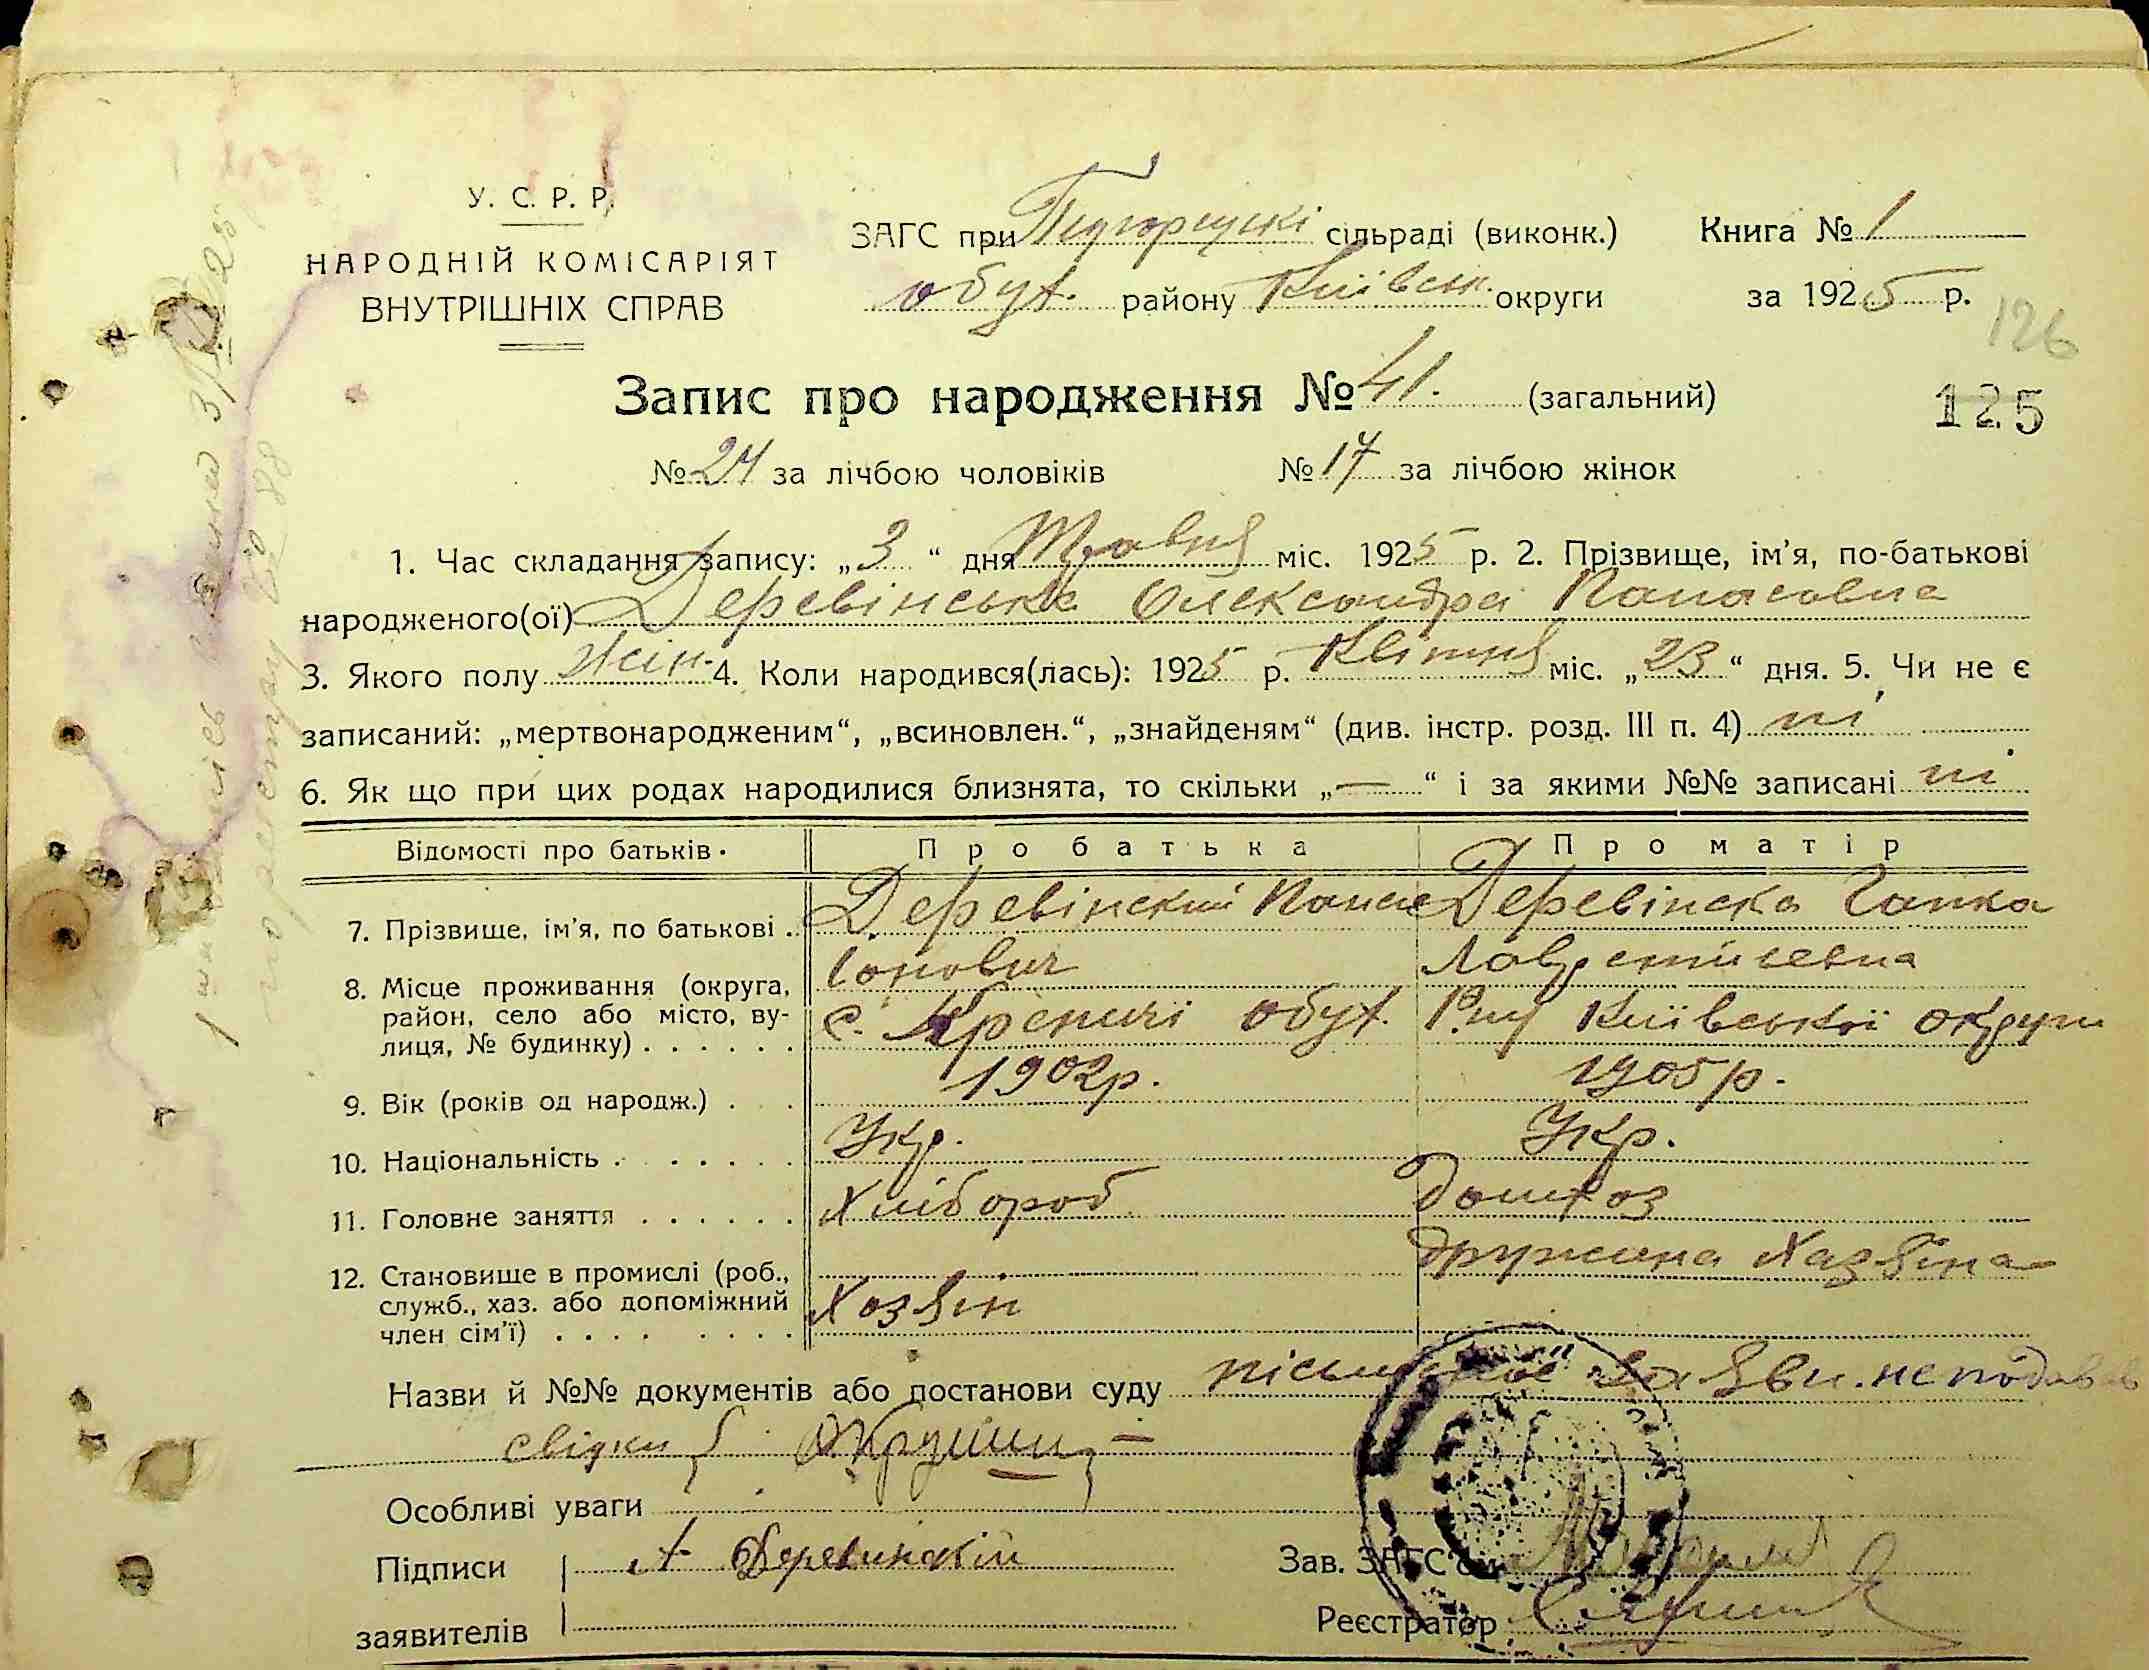 У. С. Р. Р.
НАРОДНІЙ КОМІСАРІЯТ
ВНУТРІШНІХ СПРАВ
ЗАГС при Підгорцускі сільраді (виконк.) Книга № 1
обух. району Київськ. округи за 1925 р.
126
Запис про народження № 41. (загальний)
125
№ 24 за лічбою чоловіків № 17 за лічбою жінок
1. Час складання запису: „3“ дня Травня міс. 1925 р. 2. Прізвище, ім'я, по-батькові
народженого(ої) Деревінська Олександра Панасовна
3. Якого полу жін. 4. Коли народився(лась): 1925 р. Квітня міс. „23“ дня. 5. Чи не є
записаний: „мертвонародженим“, „всиновлен.“, „знайденям“ (див. інстр. розд. III п. 4) ні
6. Як що при цих родах народилися близнята, то скільки „—“ і за якими №№ записані ні
Відомості про батьків. Про батька Про матір
7. Прізвище, ім'я, по батькові . Деревінский Панас Деревінска Гапка
Лаврентіевна
8. Місце проживання (округа,
район, село або місто, вулиця, № будинку) . . . . . . с. Креничі обух. Р-ну Київської округи
9. Вік (років од народж.) . . . 1902р. 1905р.
10. Національність . . . . . . . Укр. Укр.
11. Головне заняття . . . . . . Хлібороб домхоз
12. Становище в промислі (роб., дружина Хазяіна
служб., хаз. або допоміжний Хозяін
член сім'ї) . . . . . . . .
Назви й №№ документів або достанови суду заяви. не подавав
свідки
Особливі уваги
Підписи А Деревинскій Зав. ЗАГС'ом
заявителів Реєстратор